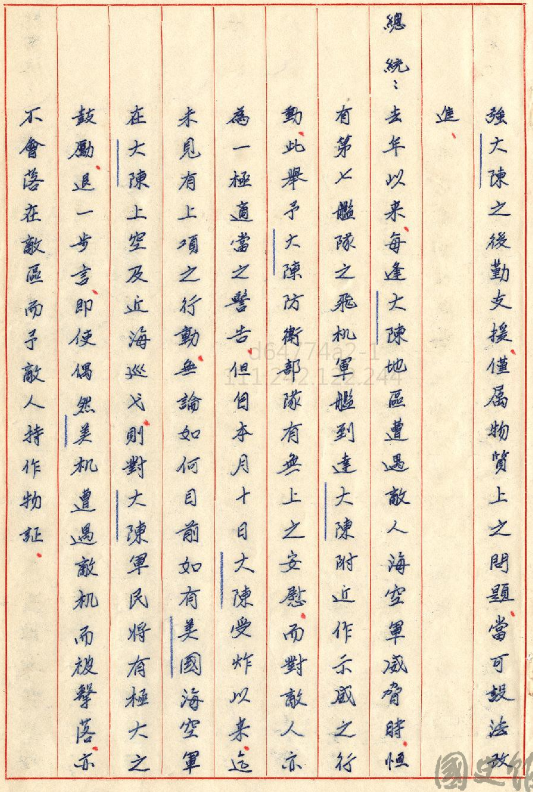 強大陳之後勤支援僅屬物質上之問題。當可設法改
進。
總統：去年以來每逢大陳地區遭遇敵人海空軍威脅時恒
有第七艦隊之飛机軍艦到達大陳附近作示威之行
動。此舉予大陳防衛部隊有無上之安慰。而對敵人亦
為一極適當之警告。但自本月十日大陳受炸以來迄
未見有上項之行動。無論如何目前如有美國海空軍
在大陳上空及近海巡弋。則對大陳軍民將有極大之
鼓勵。退一步言。即使偶然美机遭遇敵机而被擊落。亦
不會落在敵區而予敵人持作物証。
d64774a2-1
111.242.122.244
國史館